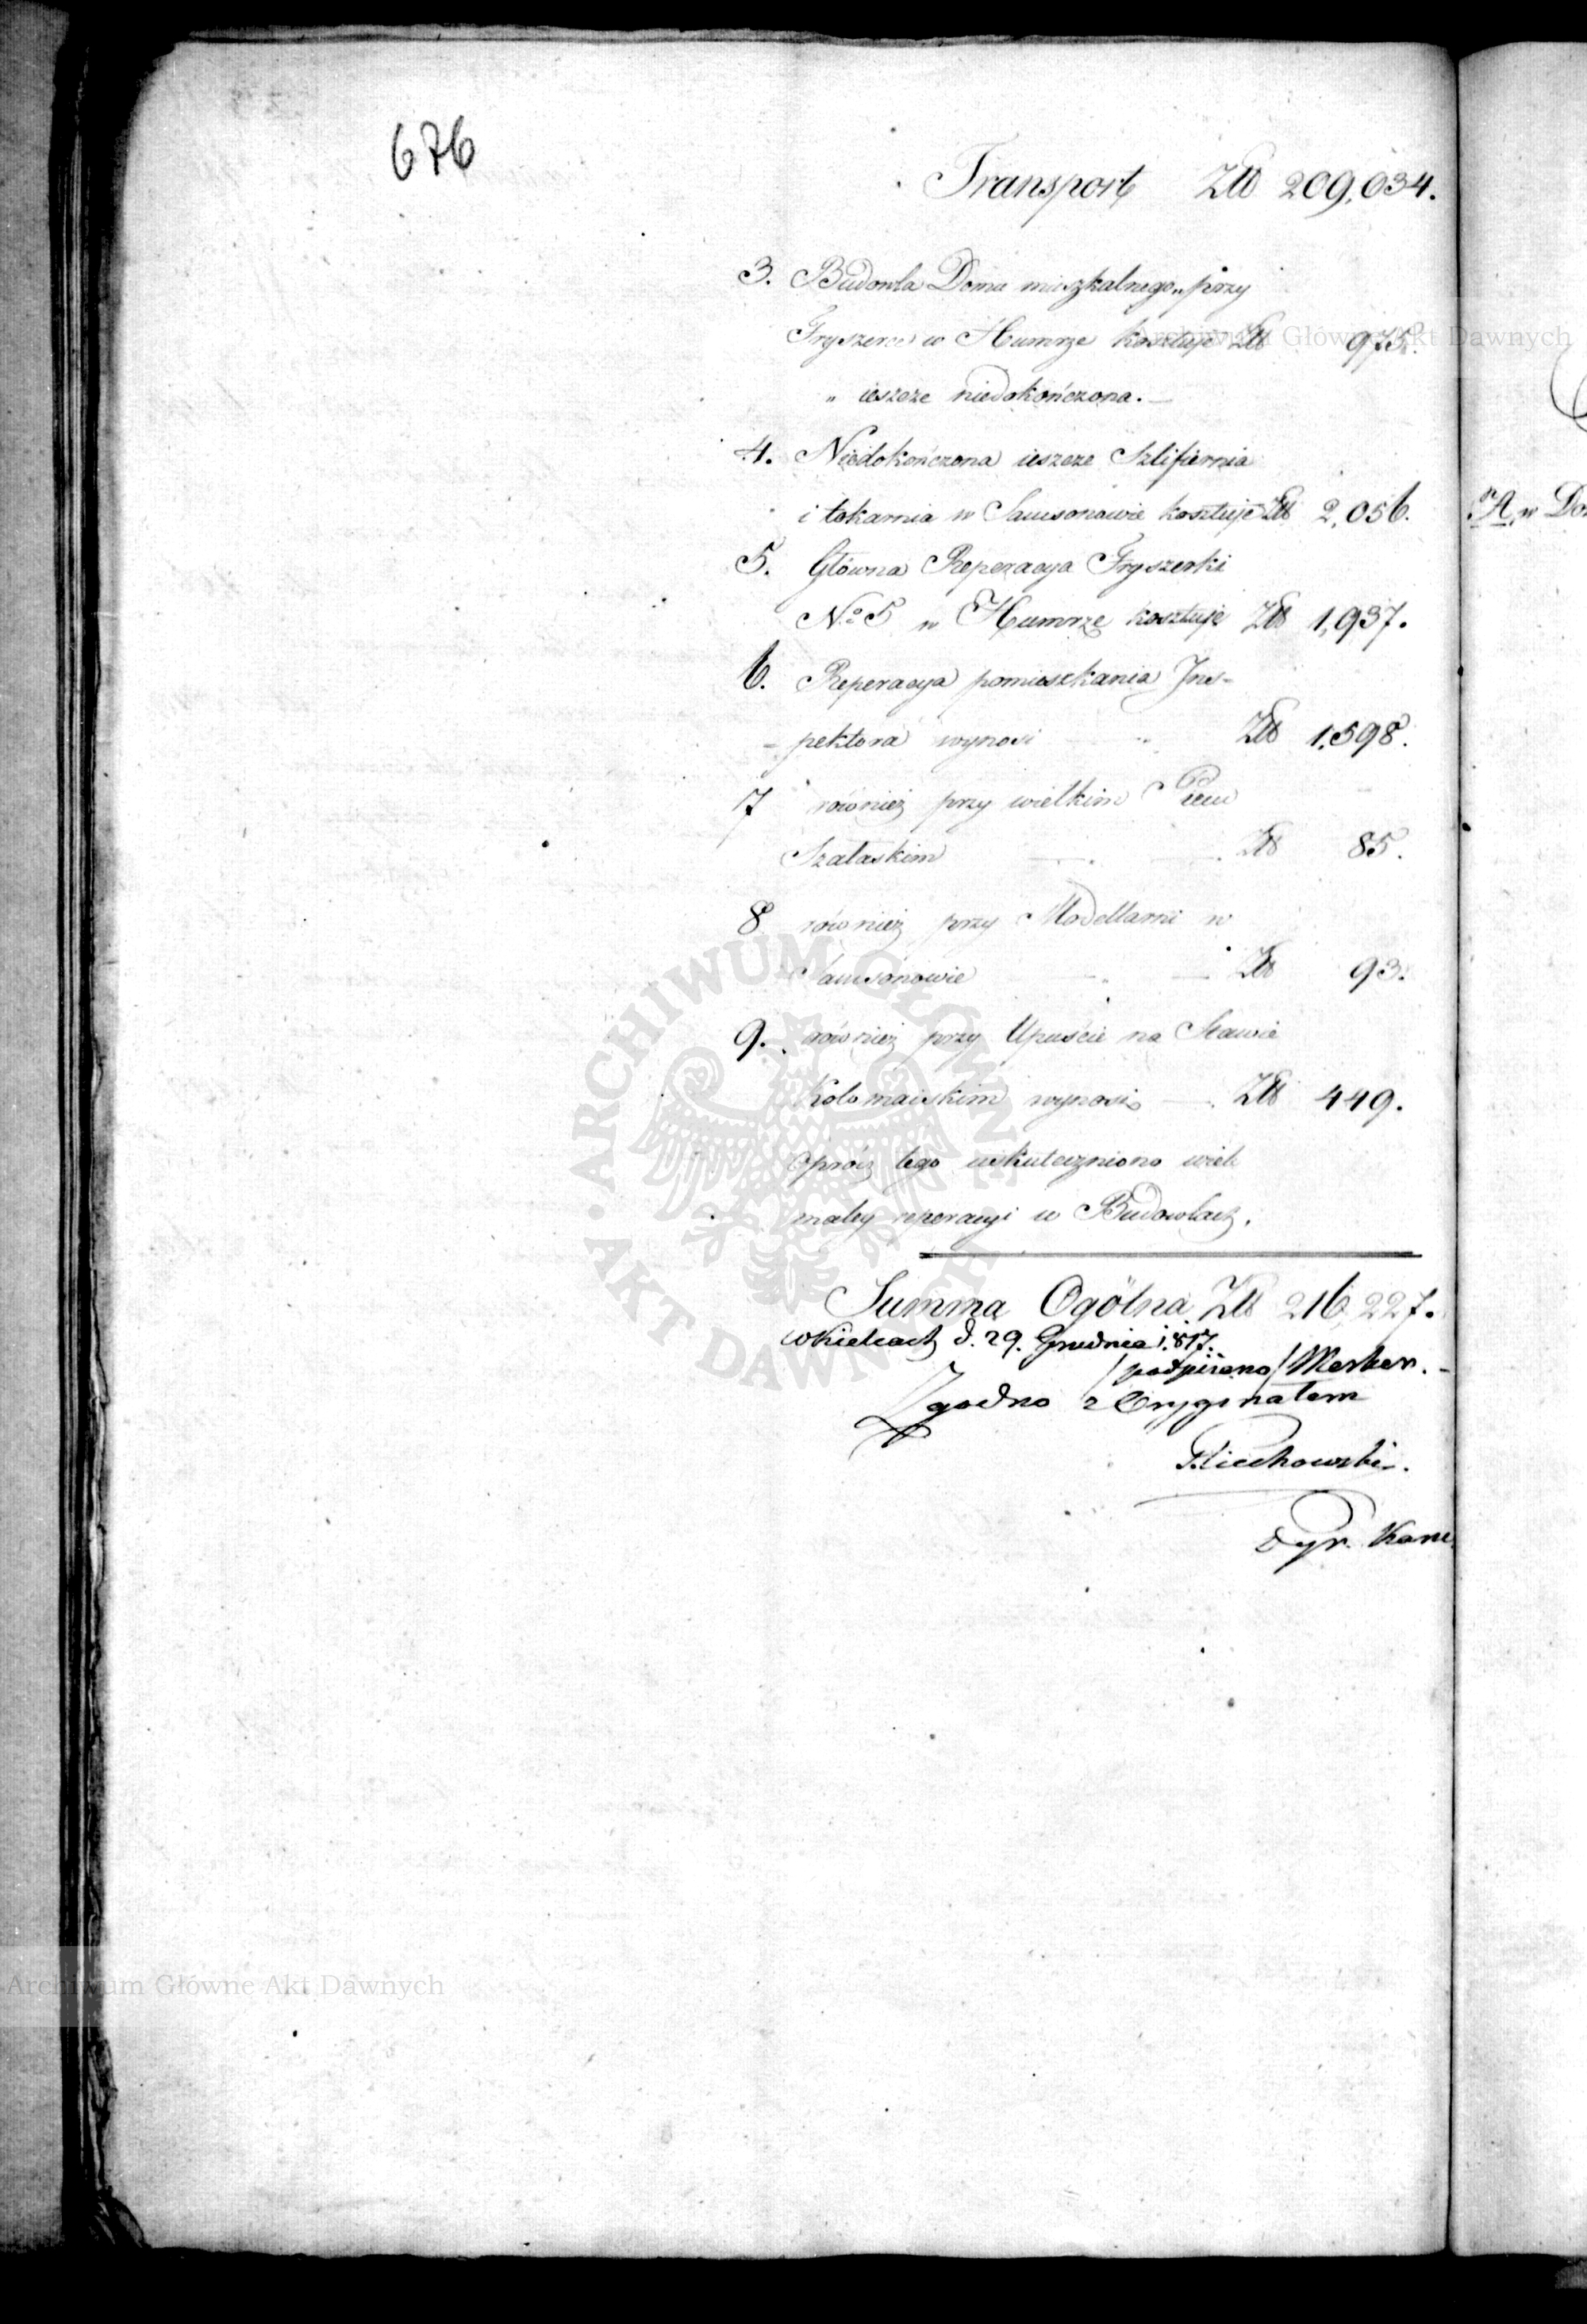 676
Transport Złł 209,034.
3. Budowla Domu mieszkalnego „ przy
Fryszerce w Humrze kosztuje Złł 975.
„ ieszcze niedokończona. —
4. Niedokończona ieszcze Szlifiernia
i tokarnia w Samsonowie kosztuje Złł 2,056.
5. Główna Reperacya Fryszerki
No 5 w Humrze kosztuje Złł 1,937.
6. Reperacya pomieszkania Ins-
- pektora wynosi — „ Złł 1,598.
7 również przy wielkim Piecu
Szałaskim — . Złł 85.
8 również przy Modellarni w
Samsonowie — „ — Złł 93.
9. również przy Upuście na Stawie
Kołomańskim wynosi — . Złł 449.
oprócz tego uskuteczniono wiele
małey reperacyi w Budowlach.
Summa Ogólna Złł 216,227.
w Kielcach d. 29. Grudnia 1.817.
/podpisano/ Merker. -
Zgodno z Oryginałem
Dyr. Kanc.
A, w
Archiwum Główne Akt Dawnych
Archiwum Główne Akt Dawnych
ARCHIWUM GŁÓWNE AKT DAWNYCH